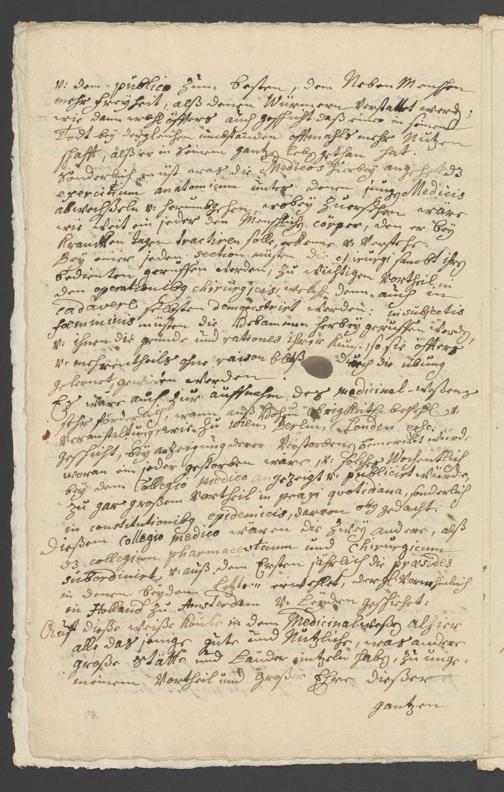 v: dem publico zum besten, dem Neben Menschen
mehr freyheit, alß denen Würmern verstattet werde;
wie dann wohl öffters auch geschicht daß einer in seinem
Todt bey dergleichen umbständen offtmahls mehr Nutzen
schafft, alß er in seinem gantzen leben gethan hat.
Sonderlich ist was die Medicos hierbey angehet dz
exercitium anatomicum unter denen jungen Medicis
abwechßeln v: herumbgehen, wobey zu ersehen wäre
wie weit ein jeder den Menschlichen cörper, den er bey
Krancken Tagen tractiren solle, erkenne v: verstehe.
Bey einer jeden Section müsten die chirurgi sambt ihren
bedienten geruffen werden, zu wichtigen Vortheil in
den operationibus chirurgicis, welche denn auch in
cadavere selbsten demonstrirt werden: in subjectis
foemininis müsten die Hebammen herbey geruffen werden,
v: ihnen die gründe und rationes ihrer Kunst, so sie öffters
v: mehrentheils ohne raison bloß durch die übung
gelernet, gewiesen werden.
Es wäre auch zur auffnahm des medicinal-weßens
sehr förderlich, wann auß hohen Obrigkeitl: befehl v:
Veranstaltung, wie zu Wien, Berlin, Londen etc:
geschicht, bey anzeigung derer Verstorbenen bemercket würde
woran ein jeder gestorben wäre, v: solches Wochentlich
bey dem Collegio medico angezeigt v: publicirt würde,
zu gar großem Vortheil in praxi quotidiana, sonderlich
in constitutionibus epidemicis, darvon oben gedacht:
Dießem Collegio medico wären die zwey andere, alß
dz collegium pharmaceuticum und Chirurgicum
subordinirt, v: auß dem Ersten jährlich die praesides
in denen beyden erwehlet, dergl. Vornehmlich
in Holland zu Amsterdam v: Leyden geschiehet:
Auf dieße weiße könte in dem Medicinalweßen alhier
alle das jenige gute und Nützliche, was andere
große Stätte und Länder haben, zu unge-
meinem Vortheil und großer Ehre dießer
gantzen